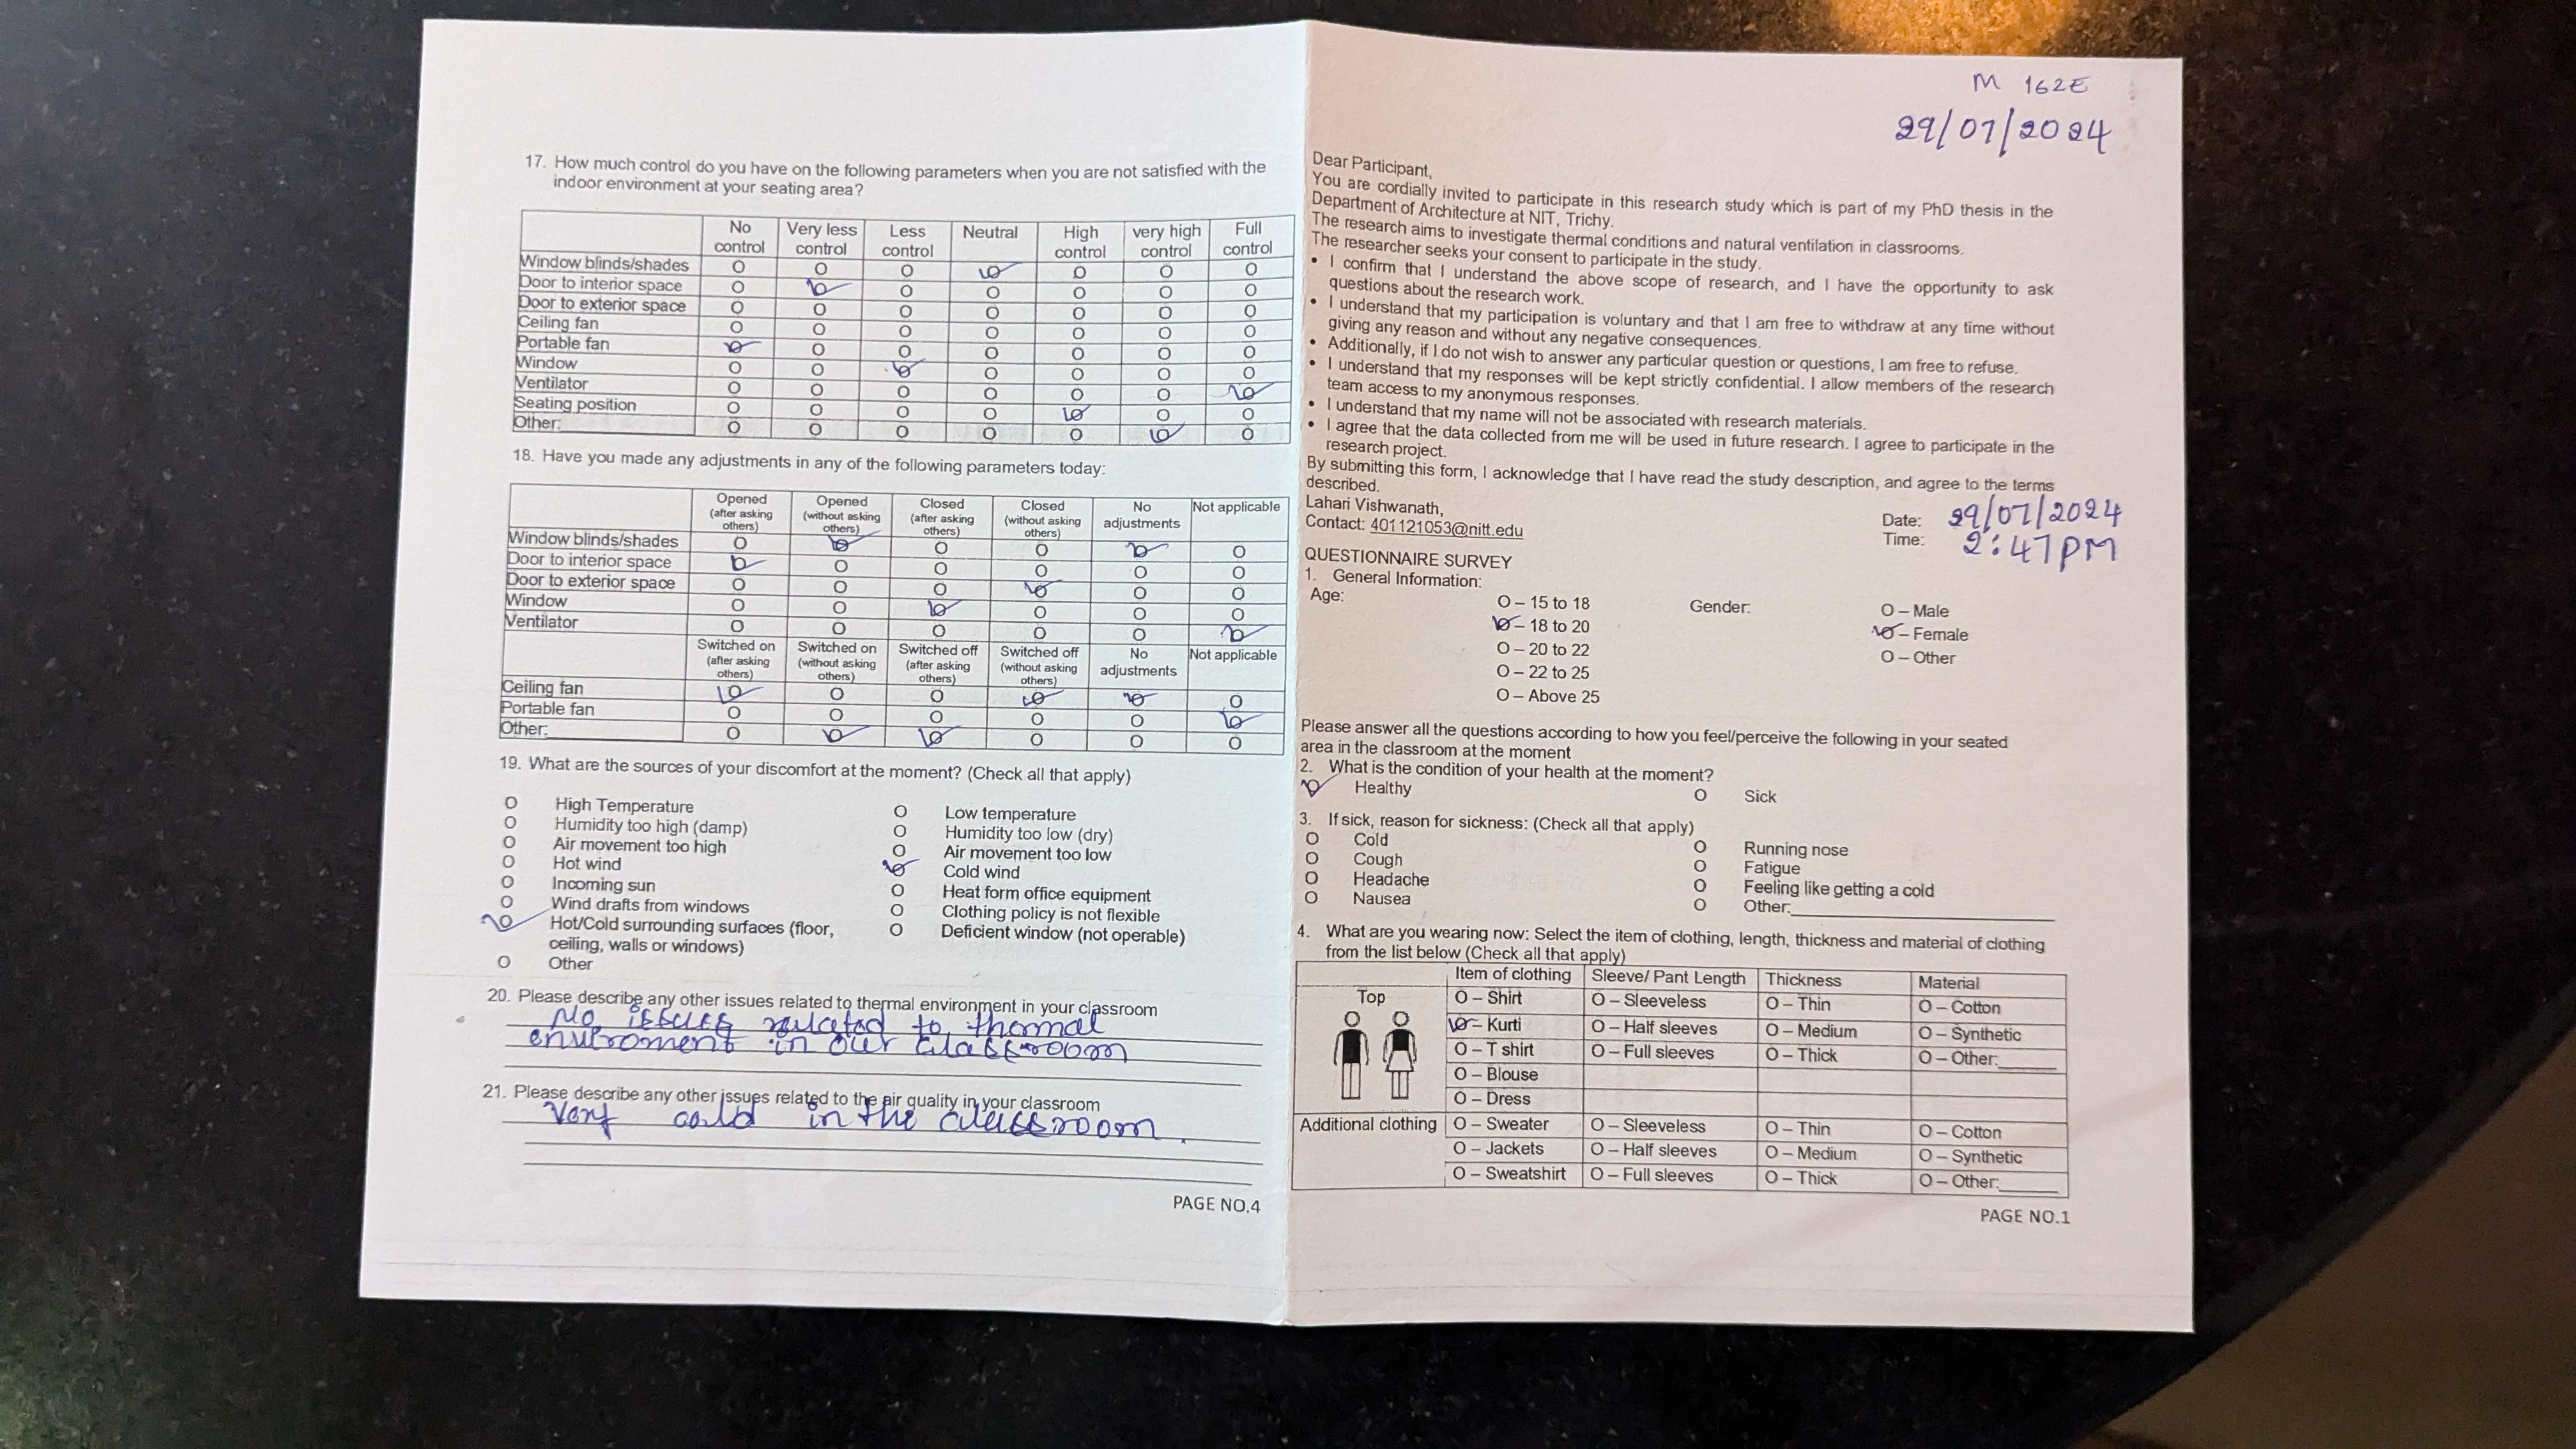 17. How much control do you have on the following parameters when you are not satisfied with the
indoor environment at your seating area?
No control Very less control Less control Neutral High control very high control Full control
Window blinds/shades O O O O O O O
Door to interior space O O O O O O O
Door to exterior space O O O O O O O
Ceiling fan O O O O O O O
Portable fan O O O O O O O
Window O O O O O O O
Ventilator O O O O O O O
Seating position O O O O O O O
Other: O O O O O O O
18. Have you made any adjustments in any of the following parameters today:
Opened (after asking others) Opened (without asking others) Closed (after asking others) Closed (without asking others) No adjustments Not applicable
Window blinds/shades O O O O O O
Door to interior space O O O O O O
Door to exterior space O O O O O O
Window O O O O O O
Ventilator O O O O O O
Switched on (after asking others) Switched on (without asking others) Switched off (after asking others) Switched off (without asking others) No adjustments Not applicable
Ceiling fan O O O O O O
Portable fan O O O O O O
Other: O O O O O O
19. What are the sources of your discomfort at the moment? (Check all that apply)
O High Temperature O Low temperature
O Humidity too high (damp) O Humidity too low (dry)
O Air movement too high O Air movement too low
O Hot wind O Cold wind
O Incoming sun O Heat form office equipment
O Wind drafts from windows O Clothing policy is not flexible
O Hot/Cold surrounding surfaces (floor, O Deficient window (not operable)
ceiling, walls or windows)
O Other
20. Please describe any other issues related to thermal environment in your classroom
No issues related to thermal
enviroment in our classroom
21. Please describe any other issues related to the air quality in your classroom
Very cold in the classroom.
PAGE NO.4
M 162E
29/07/2024
Dear Participant,
You are cordially invited to participate in this research study which is part of my PhD thesis in the
Department of Architecture at NIT, Trichy.
The research aims to investigate thermal conditions and natural ventilation in classrooms.
The researcher seeks your consent to participate in the study.
• I confirm that I understand the above scope of research, and I have the opportunity to ask
questions about the research work.
• I understand that my participation is voluntary and that I am free to withdraw at any time without
giving any reason and without any negative consequences.
• Additionally, if I do not wish to answer any particular question or questions, I am free to refuse.
• I understand that my responses will be kept strictly confidential. I allow members of the research
team access to my anonymous responses.
• I understand that my name will not be associated with research materials.
• I agree that the data collected from me will be used in future research. I agree to participate in the
research project.
By submitting this form, I acknowledge that I have read the study description, and agree to the terms
described.
Lahari Vishwanath,
Contact: 401121053@nitt.edu
Date: 29/07/2024
Time: 2:47PM
QUESTIONNAIRE SURVEY
1. General Information:
Age: O – 15 to 18 Gender: O – Male
O – 18 to 20 O – Female
O – 20 to 22 O – Other
O – 22 to 25
O – Above 25
Please answer all the questions according to how you feel/perceive the following in your seated
area in the classroom at the moment
2. What is the condition of your health at the moment?
O Healthy O Sick
3. If sick, reason for sickness: (Check all that apply)
O Cold O Running nose
O Cough O Fatigue
O Headache O Feeling like getting a cold
O Nausea O Other:
4. What are you wearing now: Select the item of clothing, length, thickness and material of clothing
from the list below (Check all that apply)
Item of clothing Sleeve/ Pant Length Thickness Material
Top O – Shirt O – Sleeveless O – Thin O – Cotton
O – Kurti O – Half sleeves O – Medium O – Synthetic
O – T shirt O – Full sleeves O – Thick O – Other:
O – Blouse
O – Dress
Additional clothing O – Sweater O – Sleeveless O – Thin O – Cotton
O – Jackets O – Half sleeves O – Medium O – Synthetic
O – Sweatshirt O – Full sleeves O – Thick O – Other:
PAGE NO.1